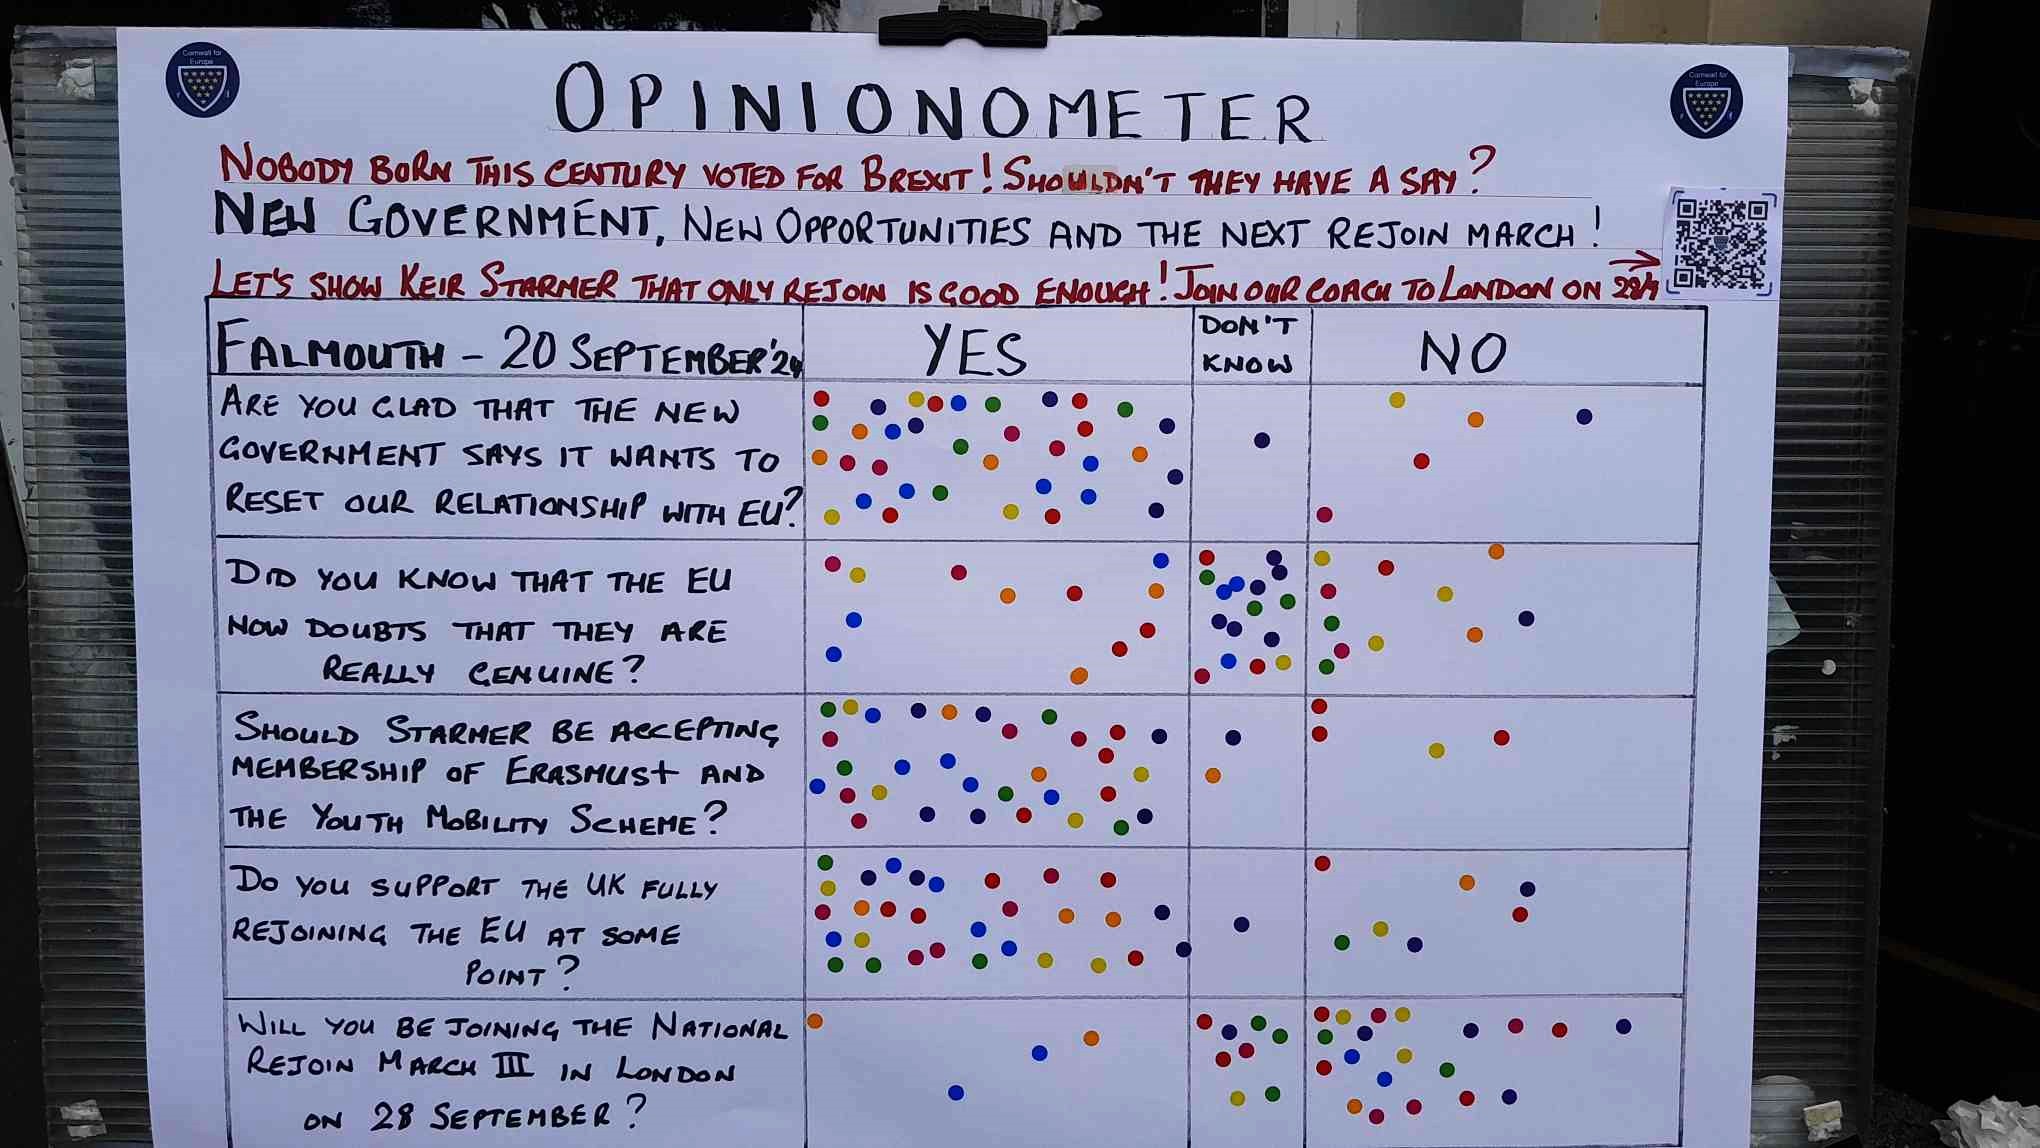 Cornwall for
Europe
OPINIONOMETER
Cornwall for
Europe
NOBODY BORN THIS CENTURY VOTED FOR BREXIT! SHOULDN'T THEY HAVE A SAY?
NEW GOVERNMENT, NEW OPPORTUNITIES AND THE NEXT REJOIN MARCH!
LET'S SHOW KEIR STARMER THAT ONLY REJOIN IS GOOD ENOUGH! JOIN OUR COACH TO LONDON ON 28/9
FALMOUTH - 20 SEPTEMBER '24
YES
DON'T
KNOW
NO
ARE YOU GLAD THAT THE NEW
GOVERNMENT SAYS IT WANTS TO
RESET OUR RELATIONSHIP WITH EU?
DID YOU KNOW THAT THE EU
NOW DOUBTS THAT THEY ARE
REALLY GENUINE?
SHOULD STARMER BE ACCEPTING
MEMBERSHIP OF ERASMUS+ AND
THE YOUTH MOBILITY SCHEME?
DO YOU SUPPORT THE UK FULLY
REJOINING THE EU AT SOME
POINT?
WILL YOU BE JOINING THE NATIONAL
REJOIN MARCH III IN LONDON
ON 28 SEPTEMBER?